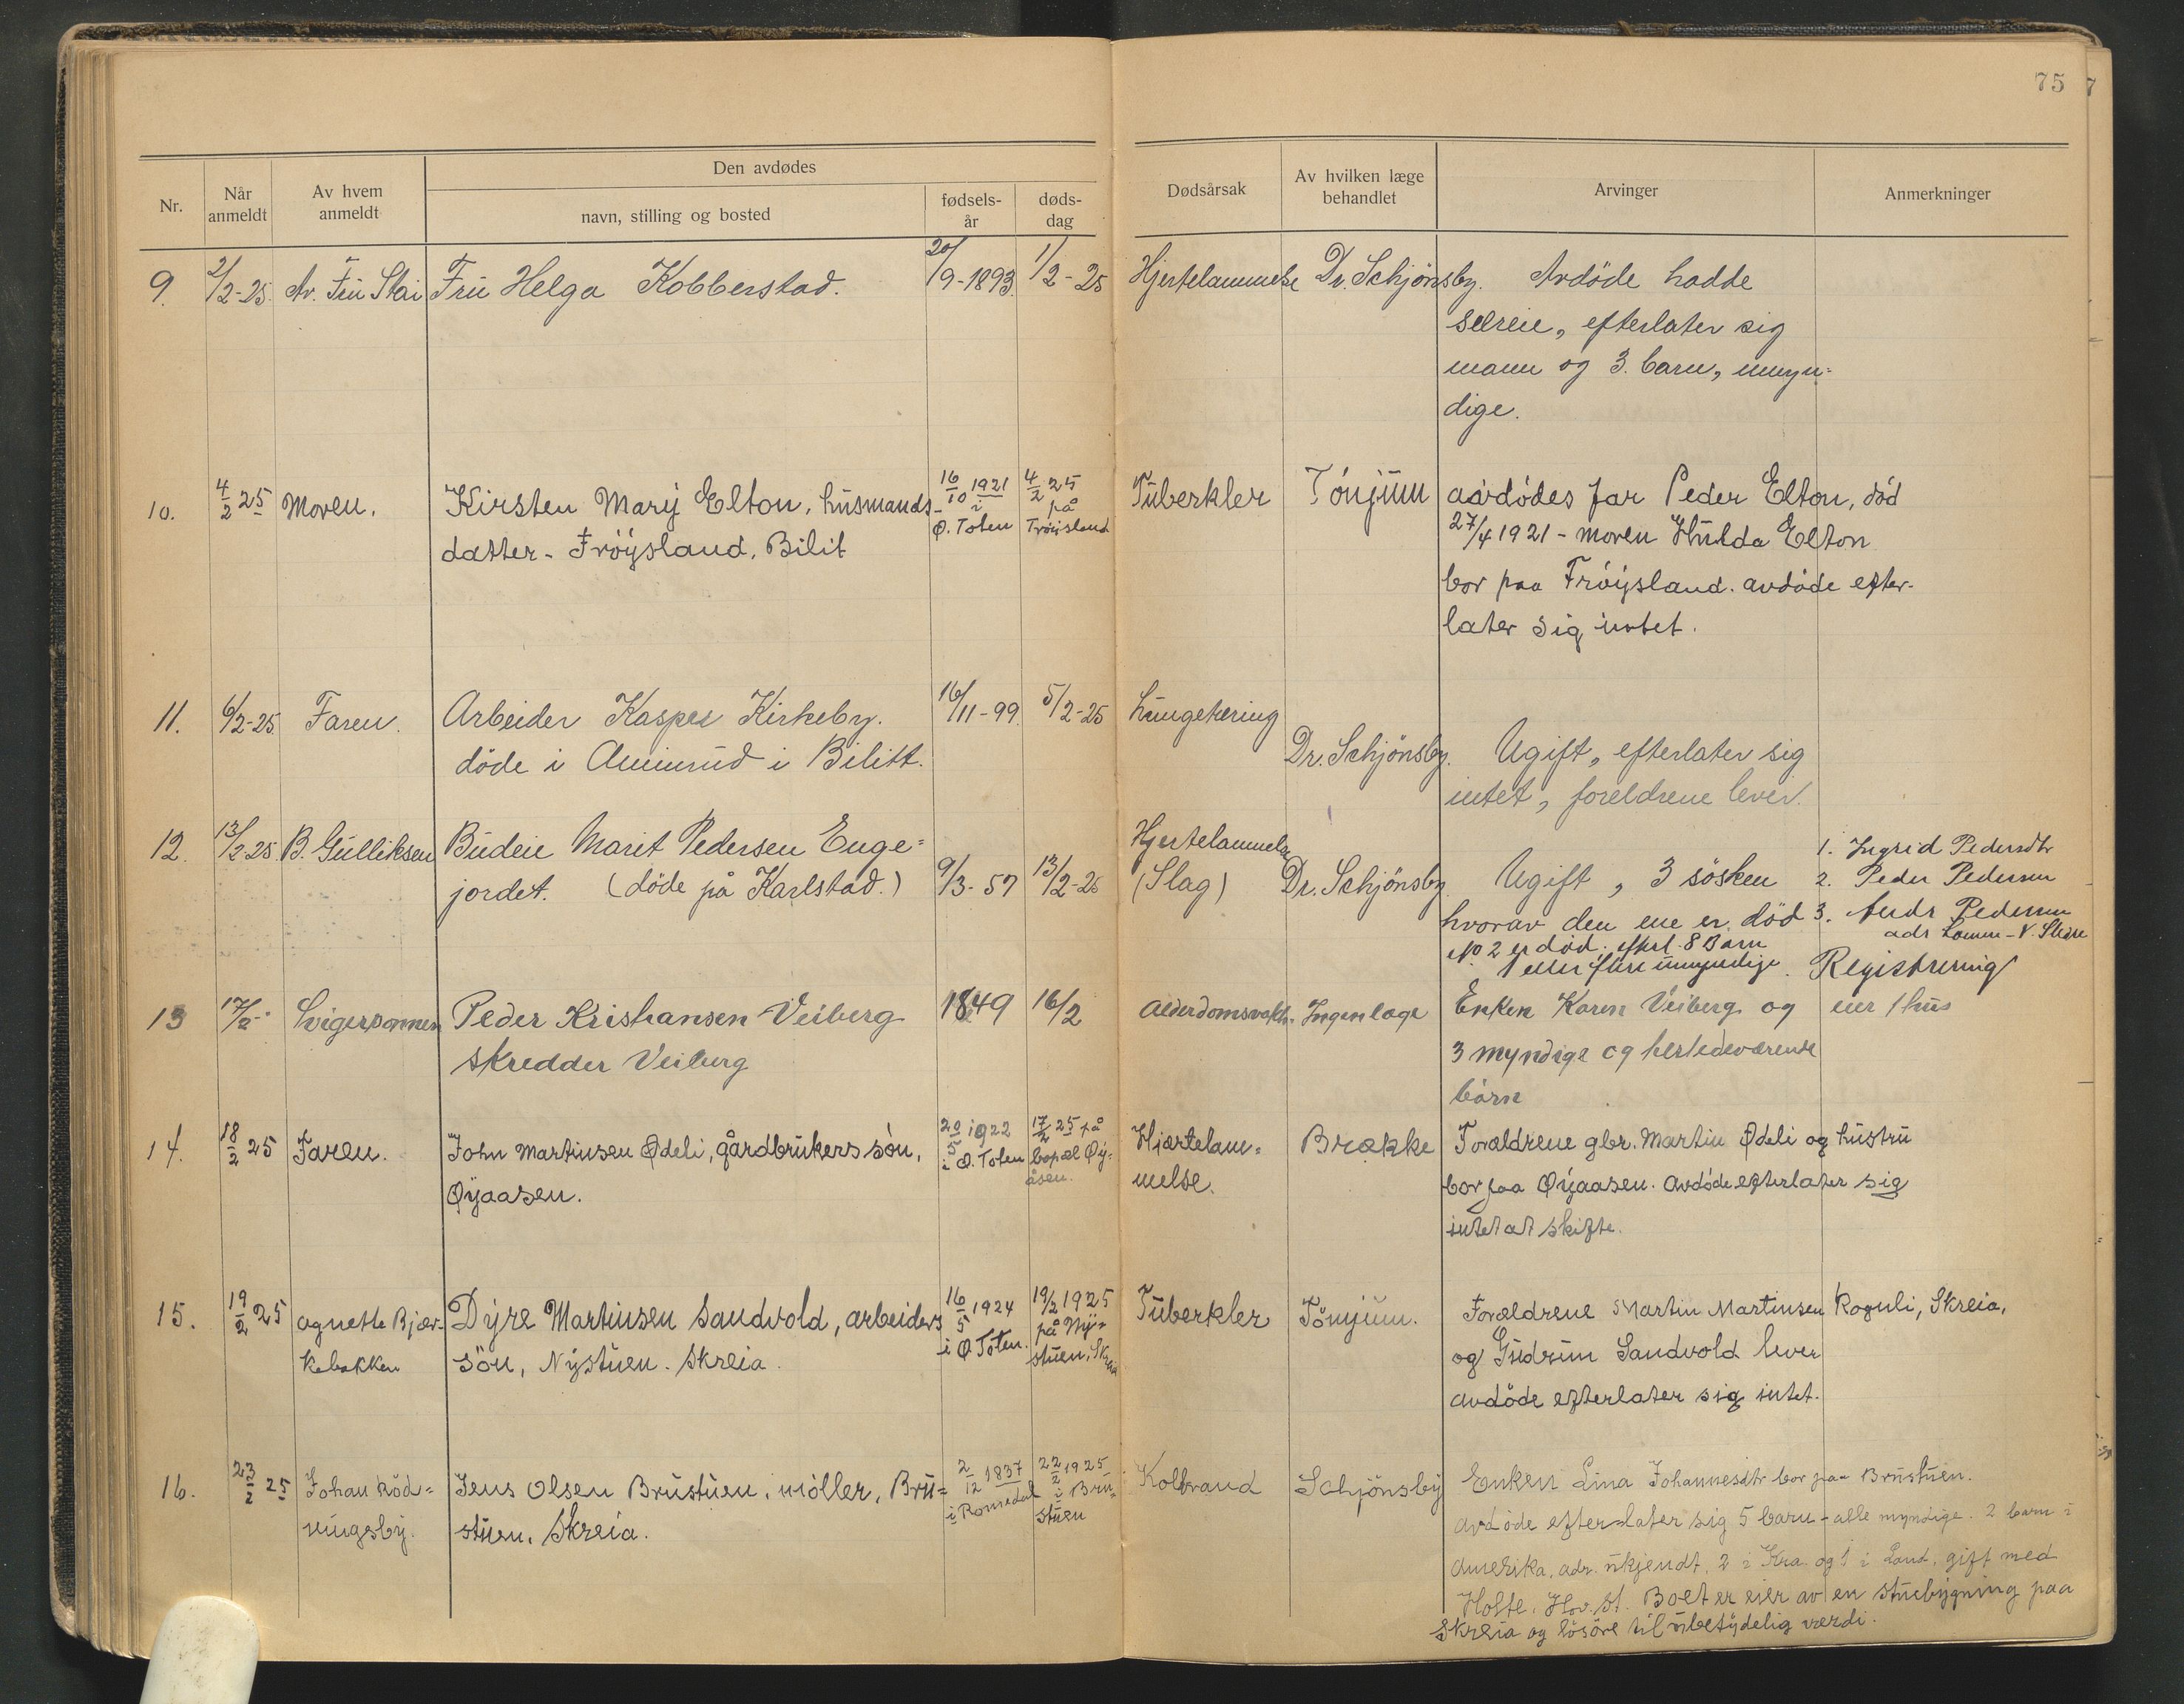 75
Nr.
Når anmeldt
Av hvem anmeldt
Den avdødes
navn, stilling og bosted
fødsels-år
døds-dag
Dødsårsak
Av hvilken læge behandlet
Arvinger
Anmerkninger
9. 2/2-25. Av. Fru Stai Fru Helga Kobberstad. 20/9-1893. 1/2-25 Hjertelammelse Dr. Schjönsby. Avdöde hadde
særeie, efterlater sig
mann og 3. barn, umyn-
dige.
10. 4/2 25 Moren. Kirsten Mary Elton, husmands- 16/10 1921 i Ø. Toten 4/2 25 på Fröisland Tuberkler Tónjum avdödes far Peder Elton, död
datter - Fröysland, Bilit
27/4 1921 - moren Hulda Elton
bor paa Fröysland. avdöde efter-
later sig intet.
11. 6/2-25. Faren. Arbeider Kasper Kirkeby. 16/11-99. 5/2-25 Lungetæring
döde i i Bilitt. Dr. Schjönsby. Ugift, efterlater sig
intet, foreldrene lever.
12. 13/2-25. B. Gulliksen Budeie Marit Pedersen Enge-
jordet. (döde på Karlstad.) 9/3-57 13/2-25 Hjertelammelse
(Slag) Dr. Schjönsby Ugift, 3 sösken
hvorav den ene er död
No 2 er död. efterl. 8 Barn
1 eller flere umyndige.
1. Ingrid Pedersdtr
2. Peder Pedersen
3. Andr Pedersen
adr Lomen - V. Slidre
Registrering
13 17/2 Svigersönnen Peder Kristiansen Veiberg 1849 16/2 Alderdomsvakh. Ingen læge Enken Karen Veiberg og eier 1 hus
skredder Veiberg 3 myndige og herstedeværende
börn
14. 18/2 25 Faren. John Martinsen Ødeli, gårdbrukers sön, 20/5 1922 i Ø. Toten 17/2 25 på bopæl Øy-åsen. Hjærtelam- Brække Forældrene gbr. Martin Ødeli og hustru
Øyaasen. melse. bor paa Øyaasen. Avdöde efterlater sig
intet at skifte.
15. 19/2 25 agnette Bjær- Dyre Martinsen Sandvold, arbeiders 16/5 1924 i Ø. Toten. 19/2 1925 på Ny-stuen, Skreia Tuberkler Tönjum. Forældrene Martin Martinsen Roguli, Skreia,
kebakken sön, Nystuen. Skreia. og Gudrun Sandvold lever
avdöde efterlater sig intet.
16. 23/2 25 Johan Röd- Jens Olsen Brustuen, möller, Bru- 2/12 1837 i Romedal 22/2 1925 i Bru-stuen Koldbrand Schjönsby Enken Lina Johannesdtr bor paa Brustuen.
ningsby. stuen, Skreia. avdöde efterlater sig 5 barn - alle myndige. 2 barn i
Amerika, adr. ukjendt, 2 i Kra. og 1 i Land, gift med
Holte, Hov. st. Boet er eier av en stuebygning paa
Skreia og lösöre til ubetydelig værdi.